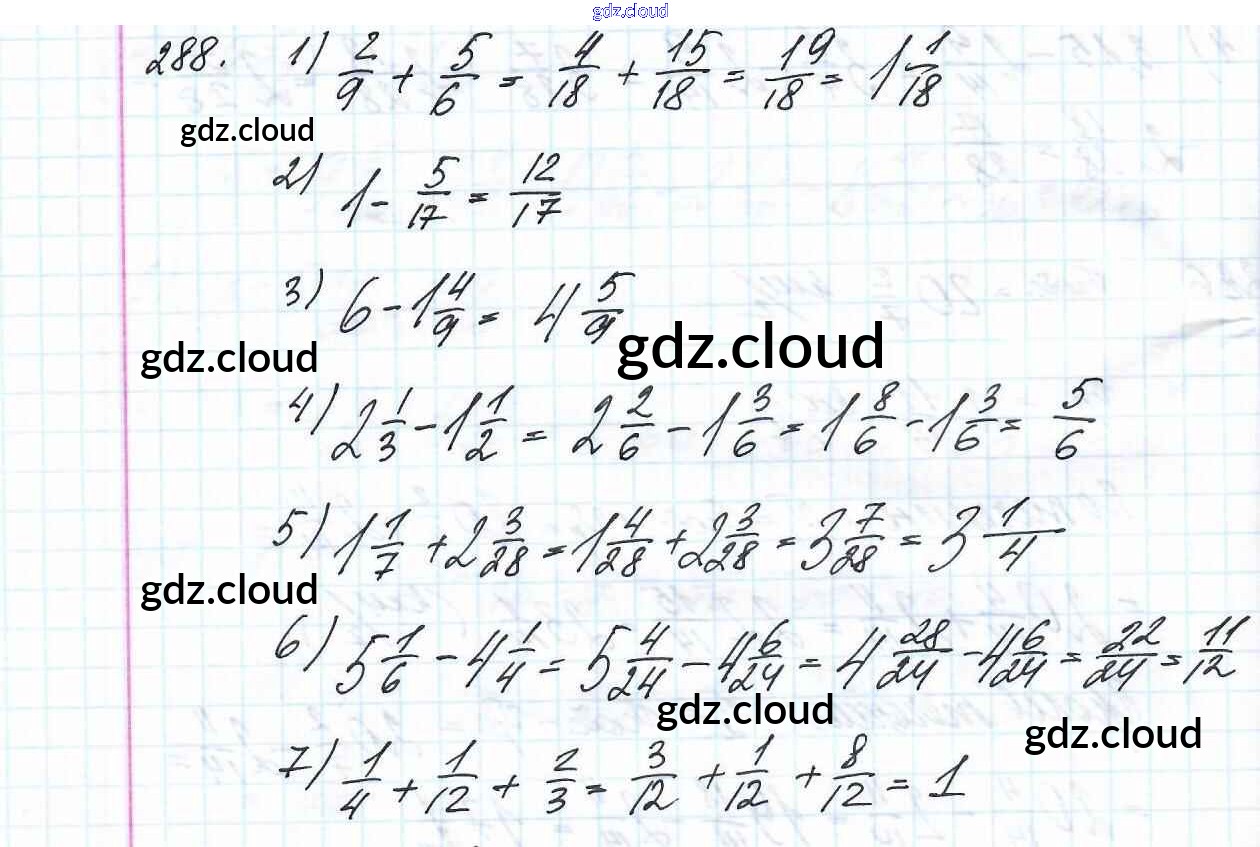 gdz.cloud
288. 1) 2/9 + 5/6 = 4/18 + 15/18 = 19/18 = 1 1/18
gdz.cloud
2) 1 - 5/17 = 12/17
3) 6 - 1 4/9 = 4 5/9
gdz.cloud gdz.cloud
4) 2 1/3 - 1 1/2 = 2 2/6 - 1 3/6 = 1 8/6 - 1 3/6 = 5/6
5) 1 1/7 + 2 3/28 = 1 4/28 + 2 3/28 = 3 7/28 = 3 1/4
gdz.cloud
6) 5 1/6 - 4 1/4 = 5 4/24 - 4 6/24 = 4 28/24 - 4 6/24 = 22/24 = 11/12
gdz.cloud gdz.cloud
7) 1/4 + 1/12 + 2/3 = 3/12 + 1/12 + 8/12 = 1